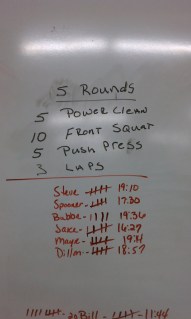 5 Rounds
5 Power Clean
10 Front Squat
5 Push Press
3 Laps
Steve - 19:10
Spooner - 17:30
Bubba - 19:36
Jake - 16:27
Maye - 19:11
Dillon - 18:57
Bill - 11:44